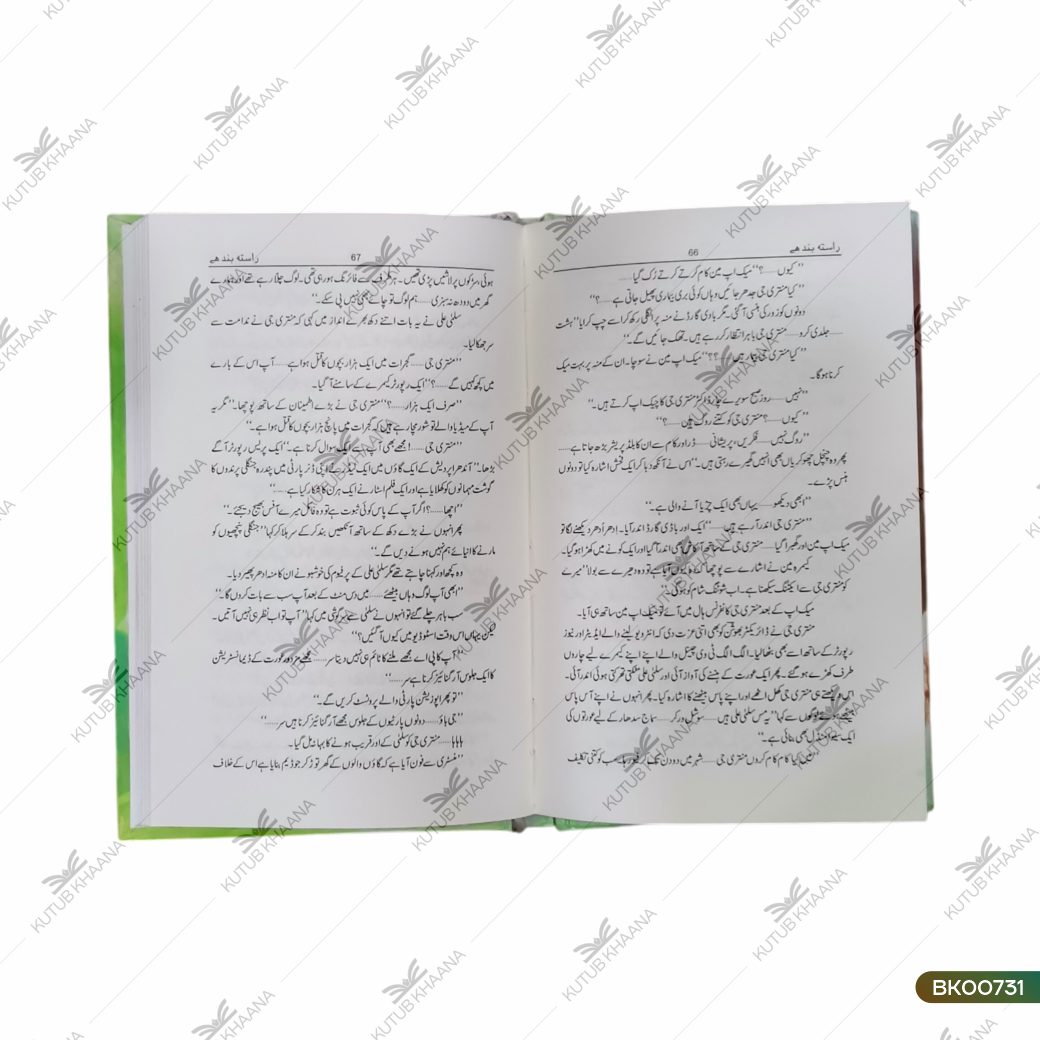 راستہ بند ھے
66
’’کیوں......؟‘‘ میک اپ مین کام کرتے کرتے رُک گیا......
’’کیا منتری جی جدھر جائیں وہاں کوئی بری بیماری پھیل جاتی ہے......؟‘‘
دونوں کو زور کی ہنسی آ گئی۔ مگر باڈی گارڈ نے منہ پر انگلی رکھ کر اسے چپ کرایا ’’ہشت
......جلدی کرو......منتری جی باہر انتظار کر رہے ہیں۔ تھک جائیں گے۔‘‘
’’کیا منتری جی بیمار ہیں......؟؟‘‘ میک اپ مین نے سوچا۔ ان کے منہ پر بہت میک
کرنا ہوگا۔
’’نہیں......روز صبح سویرے چار ڈاکٹر منتری جی کا چیک اپ کرتے ہیں۔‘‘
’’کیوں......؟ منتری جی کو کتنے روگ ہیں......؟‘‘
’’روگ نہیں......فکریں، پریشانی......ڈر اور کام سے ان کا بلڈ پریشر بڑھ جاتا ہے......
پھر وہ چنچل چھوکریاں بھی انہیں گھیرے رہتی ہیں۔‘‘ اس نے آنکھ دبا کر ایک فحش اشارہ کیا تو دونوں
ہنس پڑے۔
’’ابھی دیکھو......یہاں بھی ایک چڑیا آنے والی ہے۔‘‘
’’منتری جی اندر آ رہے ہیں......‘‘ ایک اور باڈی گارڈ اندر آیا۔ ادھر اُدھر دیکھنے لگا تو
میک اپ مین اور گھبرا گیا......منتری جی کے ساتھ آکاش بھی اندر آ گیا اور ایک کونے میں کھڑا ہو گیا۔
کیمرہ مین نے اشارے سے پوچھا کہ وہ کیوں آیا ہے تو وہ دھیرے سے بولا ’’میرے
کو منتری جی سے ایکٹنگ سیکھنا ہے۔ اب شوٹنگ شام کو ہوگی۔‘‘
میک اپ کے بعد منتری جی کانفرنس ہال میں آئے تو میک اپ مین ساتھ ہی آیا۔
منتری جی نے ڈائریکٹر بھوشن کو بھی اتنی عزت دی کہ انٹرویو لینے والے ایڈیٹر اور نیوز
رپورٹر کے ساتھ اسے بھی بٹھا لیا۔ الگ الگ ٹی وی چینل والے اپنے اپنے کیمرے لیے چاروں
طرف کھڑے ہو گئے۔ پھر ایک عورت کے ہنسنے کی آواز آئی اور سلمٰی علی مٹکتی تھرکتی ہوئی اندر آئی۔
اسے دیکھتے ہی منتری جی کھل اٹھے اور اپنے پاس بیٹھنے کا اشارہ کیا۔ پھر انہوں نے اپنے آس پاس
بیٹھے ہوئے لوگوں سے کہا ’’یہ مس سلمٰی علی ہیں......سوشل ورکر......سماج سدھار کے لیے عورتوں کی
ایک سیوا منڈل بھی بنائی ہے۔‘‘
’’میں کیا کام کام کروں منتری جی......شہر میں دو دن تک کرفیو رہا۔ سب کو کتنی تکلیف
راستہ بند ھے
67
ہوئی سڑکوں پر لاشیں پڑی تھیں۔ ہر طرف سے فائرنگ ہو رہی تھی۔ لوگ چلا رہے تھے اور ہمارے
گھر میں دودھ نہ سبزی......ہم لوگ تو چائے بھی نہیں پی سکے۔‘‘
سلمٰی علی نے یہ بات اتنے دکھ بھرے انداز میں کہی کہ منتری جی نے ندامت سے
سر جھکا لیا۔
’’منتری جی......گجرات میں ایک ہزار بچوں کا قتل ہوا ہے......آپ اس کے بارے
میں کچھ کہیں گے......؟‘‘ ایک رپورٹر کیمرے کے سامنے آ گیا۔
’’صرف ایک ہزار......؟‘‘ منتری جی نے بڑے اطمینان کے ساتھ پوچھا۔ ’’مگر یہ
آپ کے میڈیا والے تو شور مچا رہے ہیں کہ گجرات میں پانچ ہزار بچوں کا قتل ہوا ہے۔‘‘
’’منتری جی......! مجھے بھی آپ سے ایک سوال کرنا ہے۔‘‘ ایک پریس رپورٹر آگے
بڑھا۔ ’’آندھرا پردیش کے ایک گاؤں میں ایک لیڈر نے اپنی ڈنر پارٹی میں پندرہ جنگلی پرندوں کا
گوشت مہمانوں کو کھلایا ہے اور ایک فلم اسٹار نے ایک ہرن کا شکار کیا ہے......‘‘
’’اچھا......؟ اگر آپ کے پاس کوئی ثبوت ہے تو وہ فائل میرے آفس بھیج دیجئے۔‘‘
پھر انہوں نے بڑے دکھ کے ساتھ آنکھیں بند کر کے سر ہلا کر کہا ’’جنگلی پنچھیوں کو
مارنے کا انیائے ہم نہیں ہونے دیں گے۔‘‘
وہ کچھ اور کہنا چاہتے تھے مگر سلمٰی علی کے پرفیوم کی خوشبو نے ان کا منہ ادھر پھیر دیا۔
’’ابھی آپ لوگ وہاں بیٹھئے......میں دس منٹ کے بعد آپ سب سے بات کروں گا۔‘‘
سب باہر چلے گئے تو انہوں نے سلمٰی علی سے سرگوشی میں کہا ’’آپ تو اب نظر ہی نہیں آتیں۔
لیکن یہاں اس وقت اسٹوڈیو میں کیوں آ گئیں؟‘‘
’’آپ کا پی اے مجھے ملنے کا ٹائم ہی نہیں دیتا سر......مجھے مزدور عورت کے ڈیمانسٹریشن
کا ایک جلوس آرگنائیز کرنا ہے سر......‘‘
’’تو پھر اپوزیشن پارٹی والے پروٹسٹ کریں گے۔‘‘
’’جی ہاؤ......دونوں پارٹیوں کے جلوس مجھے آرگنائیز کرنا ہیں سر......‘‘
ہاہاہا......منتری جی کو سلمٰی کے اور قریب ہونے کا بہانہ مل گیا۔
’’منسٹری سے فون آیا ہے کہ گاؤں والوں کے گھر توڑ کر جو ڈیم بنایا ہے اس کے خلاف
KUTUB KHAANA
BK00731